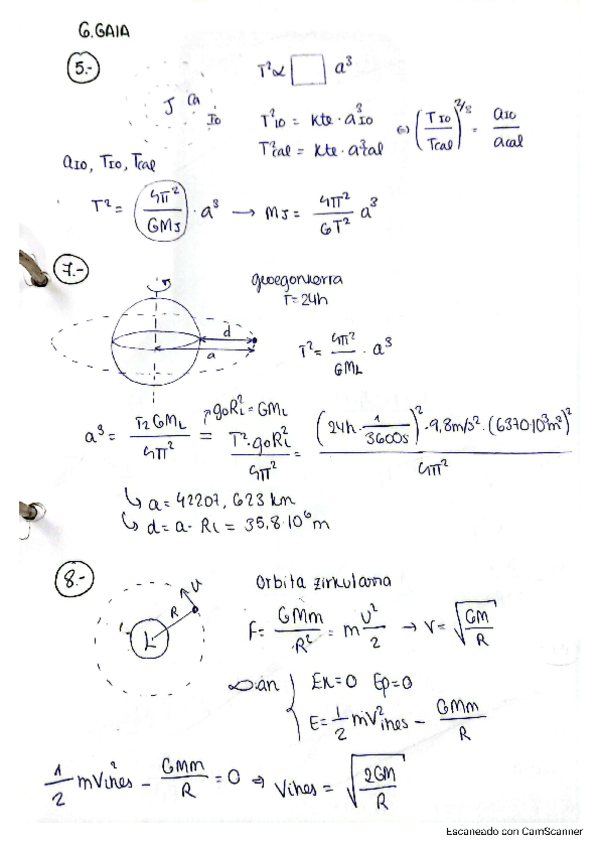 6.GAIA
5.- T²∝ □ a³
J Ca Io
T²IO = Kte · a³IO
T²cal = Kte · a³cal ⇔ (TIO/Tcal)^2/3 = aIO/acal
aIO, TIO, Tcal
T² = (4π²/GMJ) · a³ → MJ = 4π²/GT² a³
7.- geoegonkorra
T= 24h
d
a
T² = 4π²/GML · a³
a³ = T2 GML/4π² = T²·g0RL²/4π² = (24h · 1/3600s)² · 9,8m/s² · (6370·10³m²)²/4π²
g0RL² = GML
↳ a = 42207,623 km
↳ d = a - RL = 35,8·10⁶ m
8.- Orbita zirkularra
R
L
F = GMm/R² = m v²/2 → v = √GM/R
∞·an { Ek=0 Ep=0
E = 1/2 mV²ihes - GMm/R
1/2 mV²ihes - GMm/R = 0 ⇒ Vihes = √2GM/R
Escaneado con CamScanner